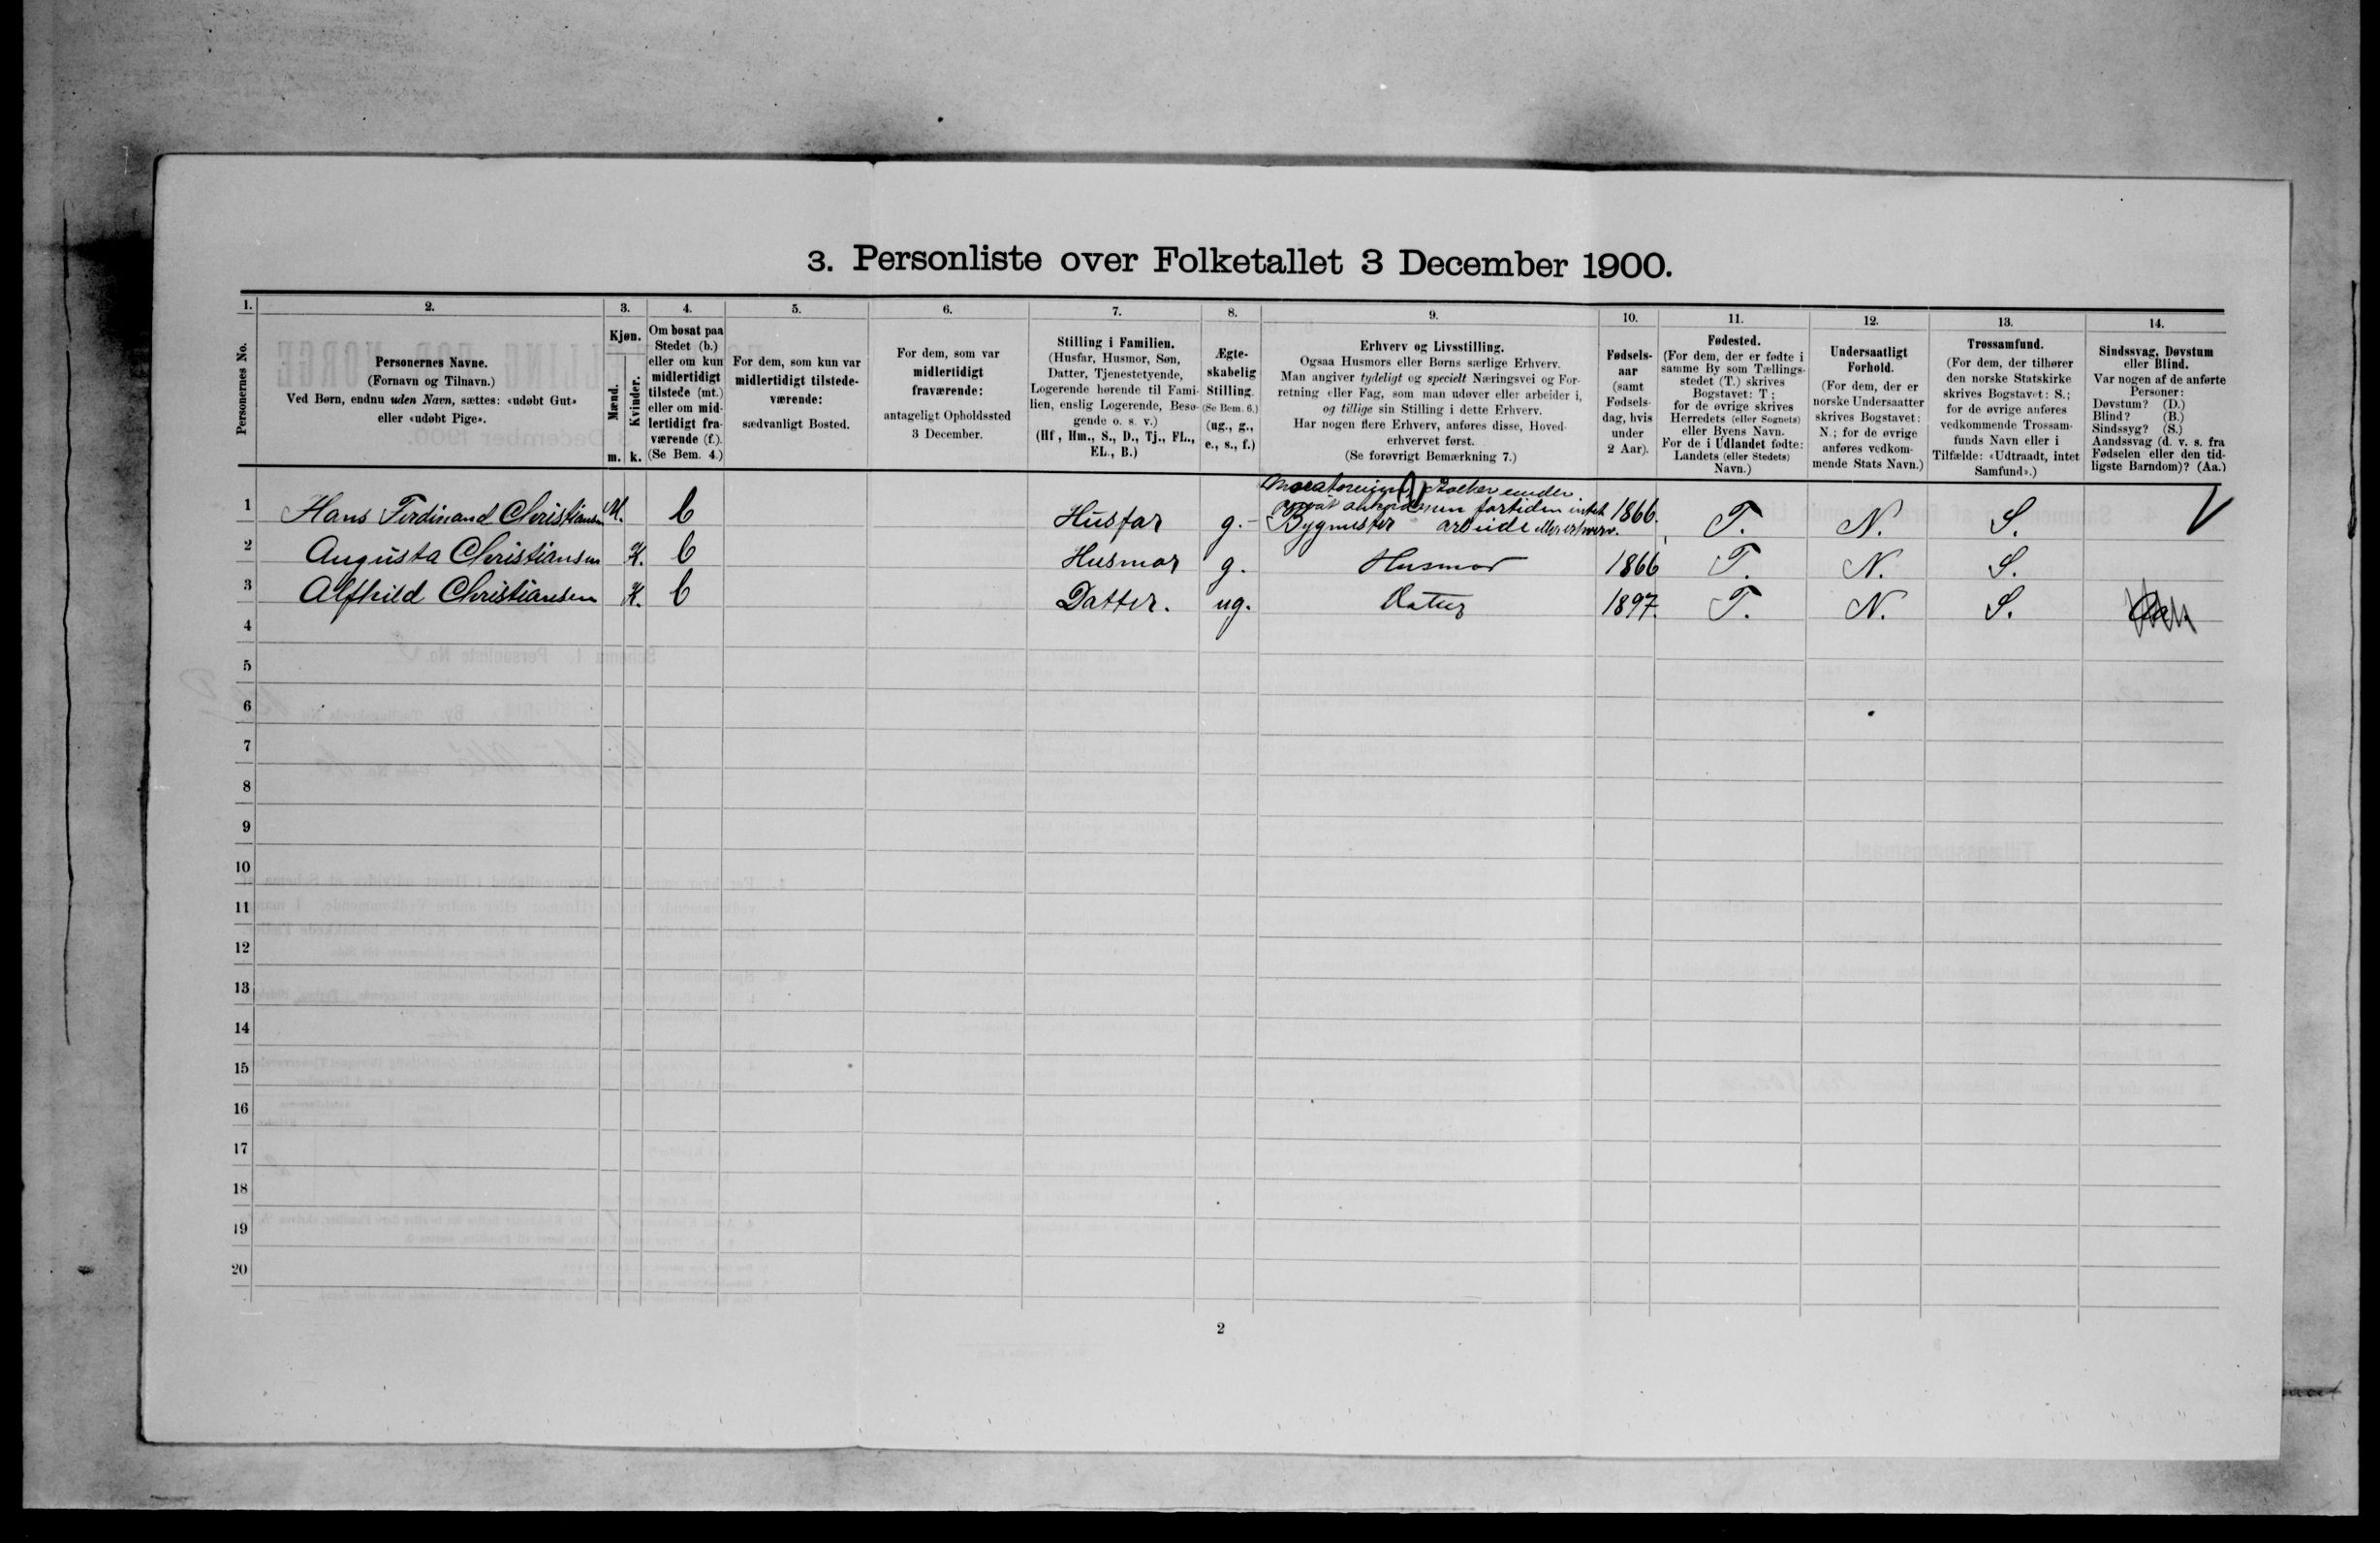 3. Personliste over Folketallet 3 December 1900.
1. 2. 3. 4. 5. 6. 7. 8. 9. 10. 11. 12. 13. 14.
Personernes No.
Personernes Navne.
(Fornavn og Tilnavn.)
Ved Børn, endnu uden Navn, sættes: «udøbt Gut»
eller «udøbt Pige».
Kjøn.
Mænd.
Kvinder.
m. k.
Om bosat paa
Stedet (b.)
eller om kun
midlertidigt
tilstede (mt.)
eller om mid-
lertidigt fra-
værende (f.).
(Se Bem. 4.)
For dem, som kun var
midlertidigt tilstede-
værende:
sædvanligt Bosted.
For dem, som var
midlertidigt
fraværende:
antageligt Opholdssted
3 December.
Stilling i Familien.
(Husfar, Husmor, Søn,
Datter, Tjenestetyende,
Logerende hørende til Fami-
lien, enslig Logerende, Besø-
gende o. s. v.)
(Hf, Hm., S., D., Tj., FL.,
EL., B.)
Ægte-
skabelig
Stilling.
(Se Bem. 6.)
(ug., g.,
e., s., f.)
Erhverv og Livsstilling.
Ogsaa Husmors eller Børns særlige Erhverv.
Man angiver tydeligt og specielt Næringsvei og For-
retning eller Fag, som man udøver eller arbeider i,
og tillige sin Stilling i dette Erhverv.
Har nogen flere Erhverv, anføres disse, Hoved-
erhvervet først.
(Se forøvrigt Bemærkning 7.)
Fødsels-
aar
(samt
Fødsels-
dag, hvis
under
2 Aar).
Fødested.
(For dem, der er fødte i
samme By som Tællings-
stedet (T.) skrives
Bogstavet: T;
for de øvrige skrives
Herredets (eller Sognets)
eller Byens Navn.
For de i Udlandet fødte:
Landets (eller Stedets)
Navn.)
Undersaatligt
Forhold.
(For dem, der er
norske Undersaatter
skrives Bogstavet:
N.; for de øvrige
anføres vedkom-
mende Stats Navn.)
Trossamfund.
(For dem, der tilhører
den norske Statskirke
skrives Bogstavet: S.;
for de øvrige anføres
vedkommende Trossam-
funds Navn eller i
Tilfælde: «Udtraadt, intet
Samfund».)
Sindssvag, Døvstum
eller Blind.
Var nogen af de anførte
Personer:
Døvstum? (D.)
Blind? (B.)
Sindssyg? (S.)
Aandssvag (d. v. s. fra
Fødselen eller den tid-
ligste Barndom)? (Aa.)
under
fortiden intet
1 Hans Ferdinand Christiansen M. b Husfar g. Bygmester arbeide eller erhverv. 1866. T. N. S.
2 Augusta Christiansen K. b Husmor g. Husmor 1866 T. N. S.
3 Alfhild Christiansen K. b Datter. ug. Datter 1897. T. N. S.
4
5
6
7
8
9
10
11
12
13
14
15
16
17
18
19
20
2